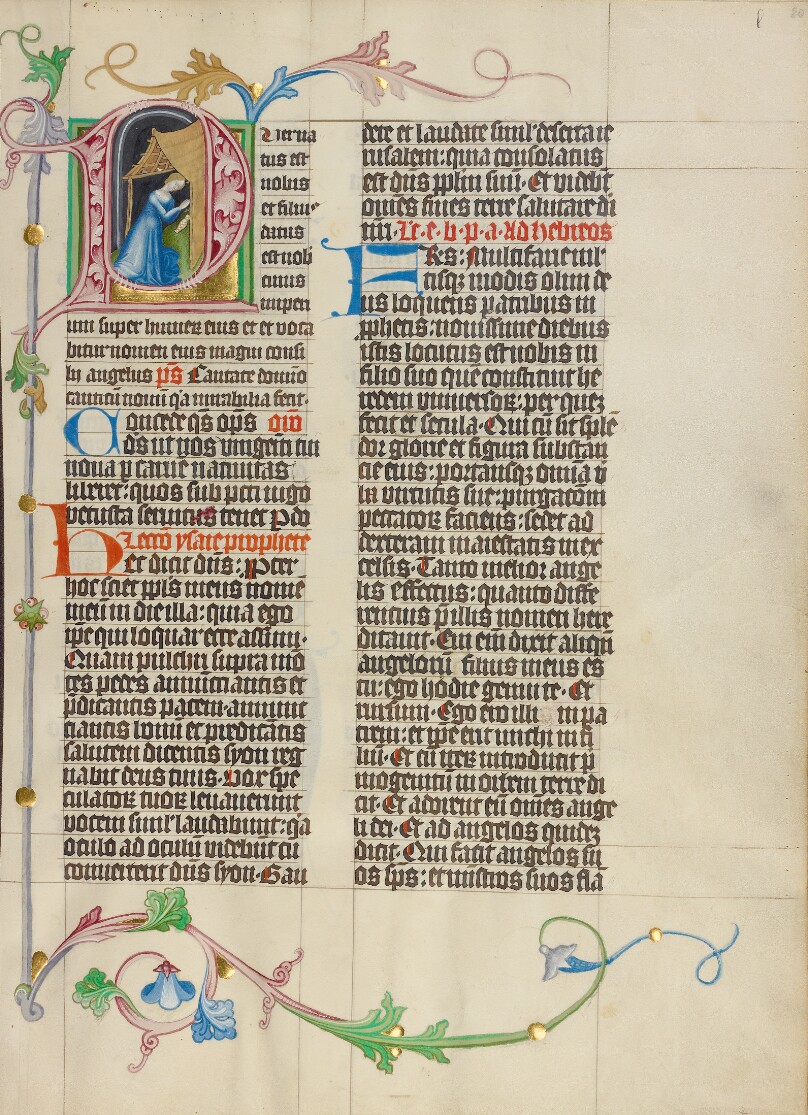 Puer na
tus est
nobis
et filius
datus
est nob
cuius
imperi
um super humerū eius et et voca
bitur nomen eius magni consi
lij angelus p̄s Cantate domino
canticū nouū q̄a mirabilia fecit·
Concede q̄s op̄s om̄
ds ut nos vnigeniti tui
noua p carnē natiuitas
liberet: quos sub pcti iugo
vetusta seruitus tenet P do
Lecc̄o ysaie prophete
Hec dicit dn̄s: Propter
hoc sciet ppl̄s meus nomē
meū in die illa: quia ego
ip̄e qui loquar ecce assum·
Quam pulchri supra mō
tes pedes annunciantis et
p̄dicantis pacem· annunt
ciantis bonū et predicātis
salutem dicentis syon reg
nabit deus tuus· Vox spe
culatoꝝ tuoꝝ leuauerunt
vocem simul laudabunt: q̄a
oculo ad oculū videbūt cū
conuerterit dn̄s syon· Gau
dete et laudate simul deserta ie
rusalem: quia consolatus
est dn̄s pplm̄ suū· Et videbūt
om̄es fines terre salutare di
nr̄i· Lc̄· e· b· p· a· Ad hebreos
FRs: Multifarie mul
tisqꝫ modis olim de
us loquens patribus in
pphetis: nouissime diebus
istis locutus est nobis in
filio suo quē constituit he
redem vniuersoꝝ: per quē
fecit et secula· Qui cū sit splē
dor glorie et figura substan
cie eius: portansqꝫ omīa v̄
bo virtutis sue: purgac̄om
peccatoꝝ faciens: sedet ad
dexteram maiestatis in ex
celsis· Tanto melior ange
lis effectus: quanto diffe
rentius p̄ illis nomen here
ditauit· Cui em̄ dixit aliqn̄
angeloru filius meus es
tu: ego hodie genui te· Et
rursum· Ego ero illi in pa
trem: et ip̄e erit michi in fi
liū· Et cū iteꝝ introducit p
mogenitū in orbem terre di
cit· Et adorent eū om̄es ange
li dei· Et ad angelos quidē
dicit· Qui facit angelos su
os sp̄s: et ministros suos fla